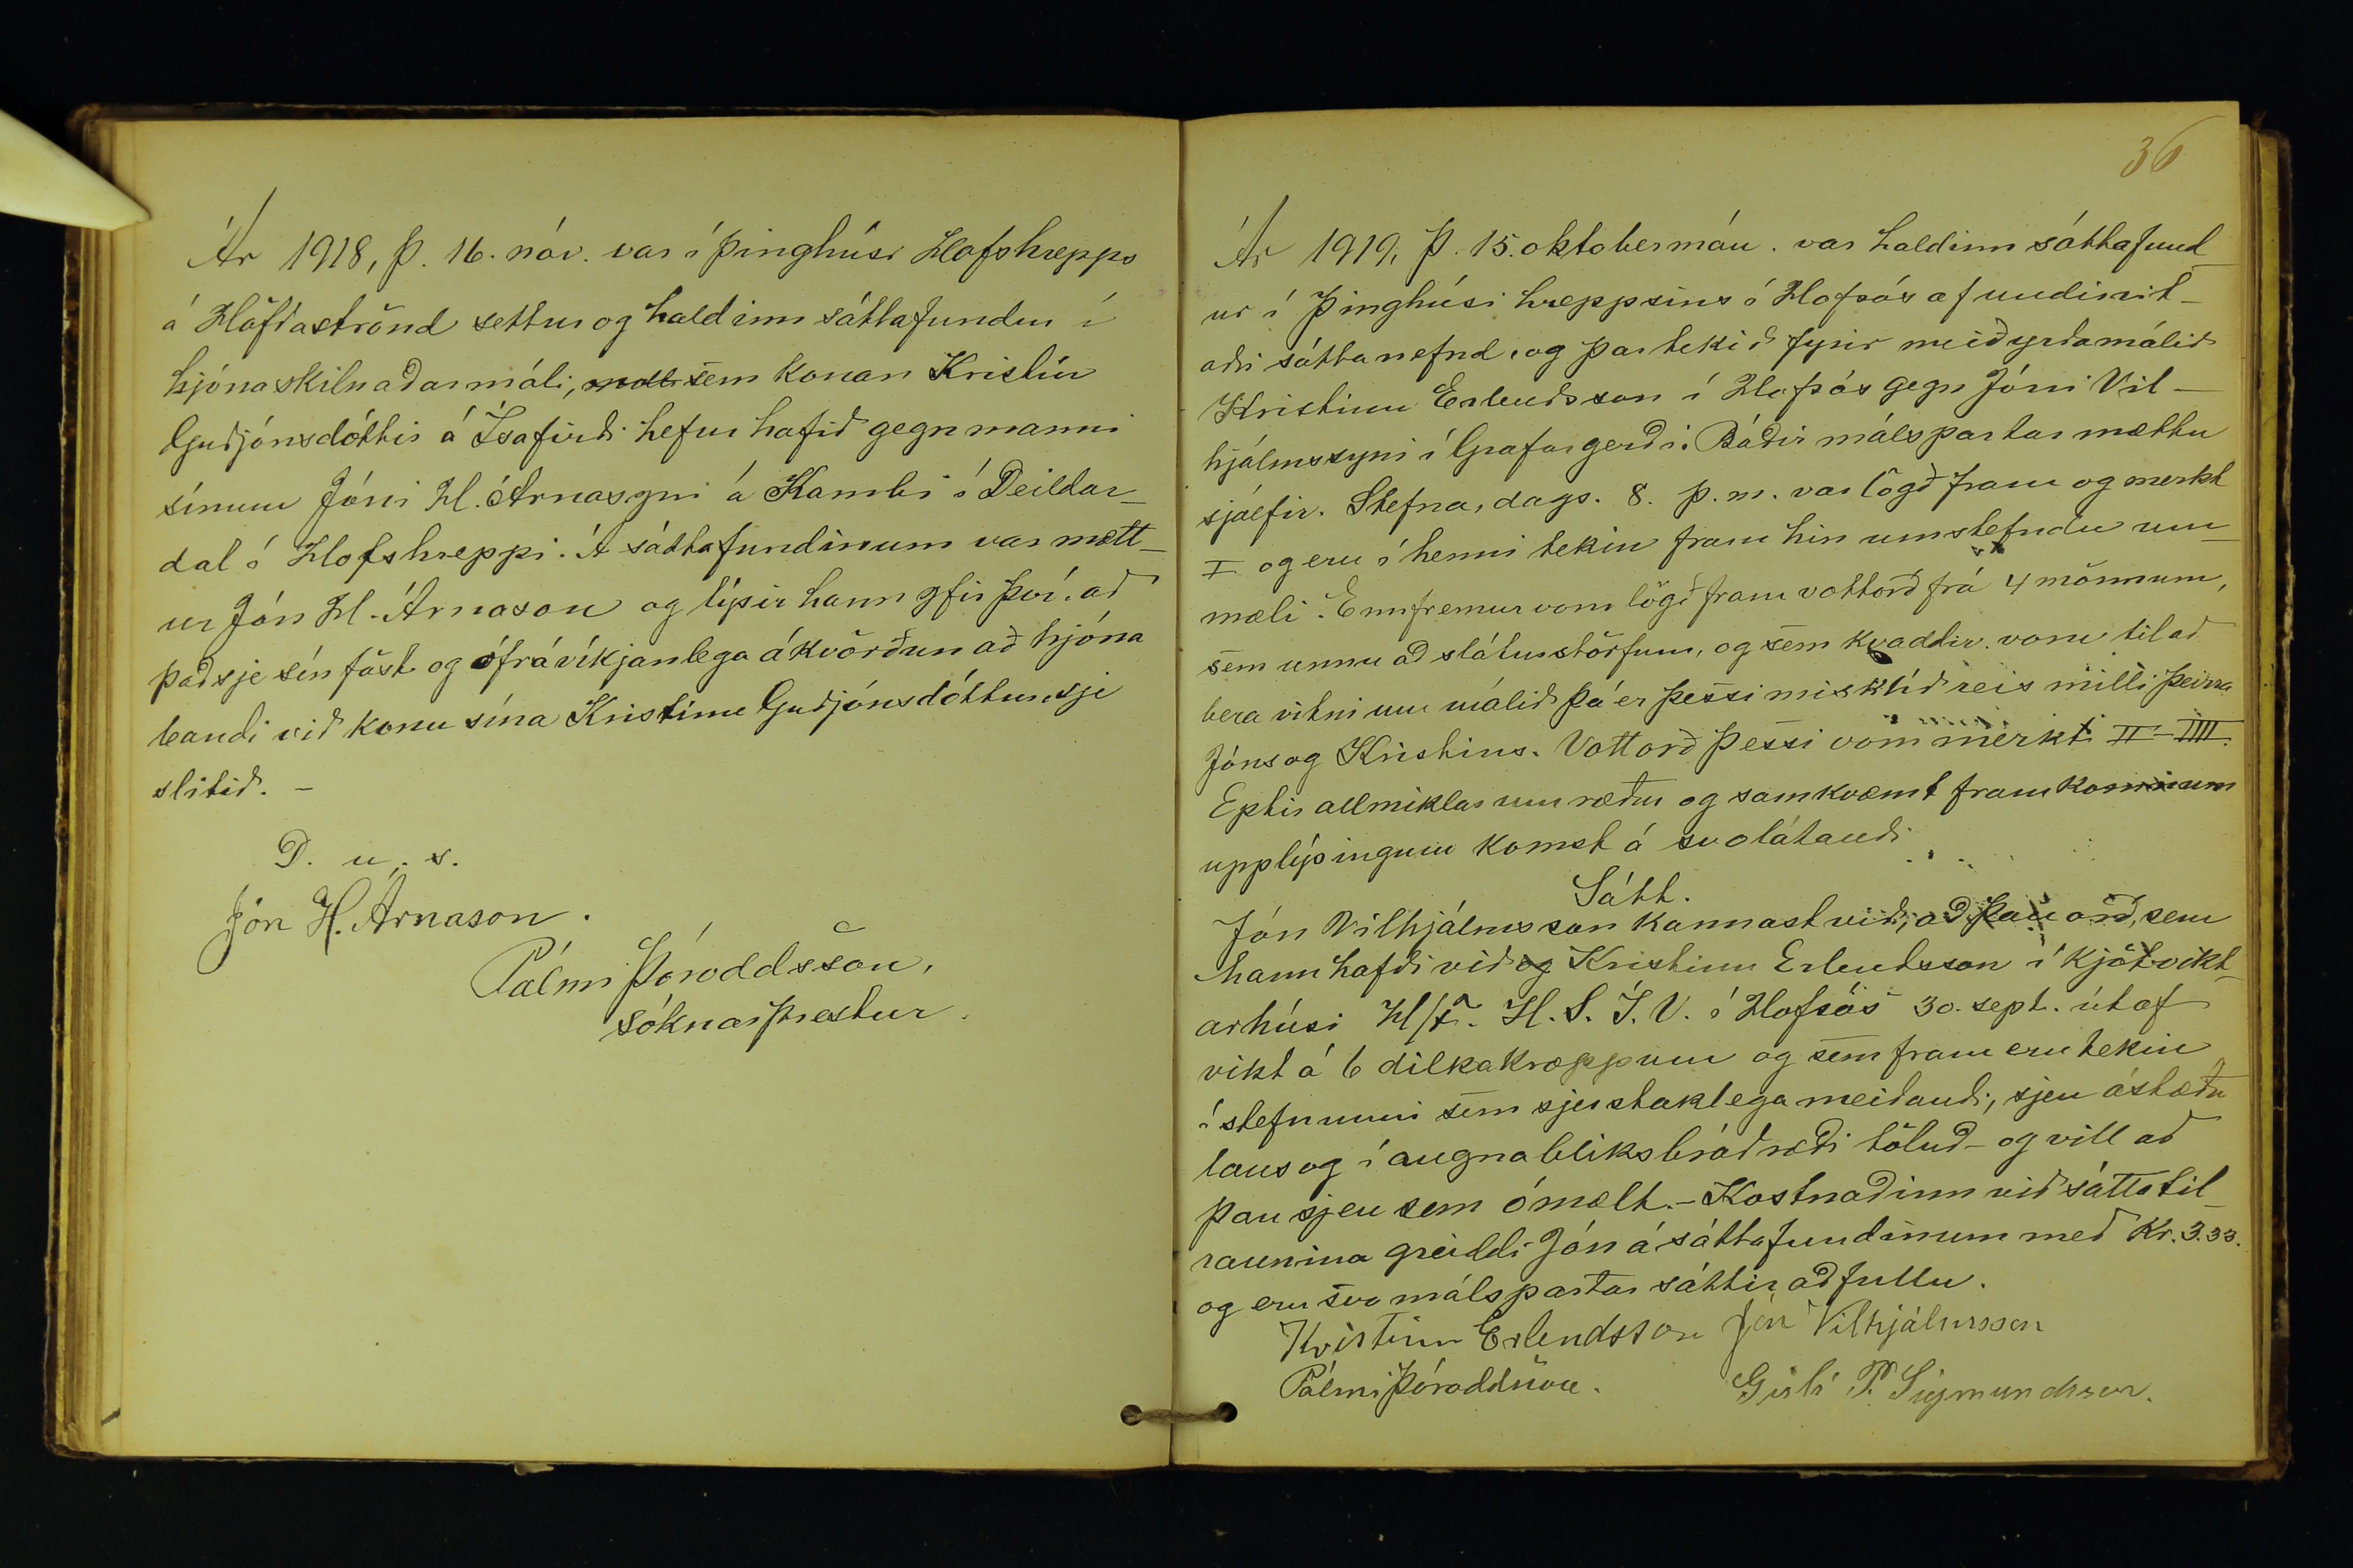 Ár 1918, þ. 16. nóv. var í þinghúsi Hofshrepps
á Höfðaströnd settur og haldinn sáttafundur í
hjónaskilnaðarmáli, sem konan Kristín
Guðjónsdóttir á Ísafirði hefur hafið gegn manni
sínum Jóni H. Árnasyni á Kambi í Deildar-
dal í Hofshreppi. Á sáttafundinum var mætt-
ur Jón H. Árnason og lýsir hann yfir því, að
það sje sín föst og ófrávíkjanlega ákvörðun að hjóna
bandi við konu sína Kristínu Guðjónsdóttur, sje
slitið. –
D. u. s.
Jón H. Árnason.
Pálmi Þóroddsson,
sóknarprestur.
36
Ár 1919, þ. 15. oktobermán. var haldinn sáttafund-
ur í Þinghúsi hreppsins í Hofsós af undirrit-
aðri sáttanefnd, og þar tekið fyrir meiðyrðamálið
Kristinn Erlendsson í Hofsós gegn Jóni Vil-
hjálmssyni í Grafargerði. Báðir málspartar mættu
sjálfir. Stefna, dags. 8. þ. m. var lögð fram og merkt
I og eru í henni tekin fram hin umstefndu um-
mæli. Ennfremur voru lögð fram vottorð frá 4 mönnum,
sem unnu að sláturstörfum, og sem kvaddir voru til að
bera vitni um málið þá er þessi misklíð reis milli þeirra
Jóns og Kristins. Vottorð þessi voru merkt II–IIII.
Eptir allmiklar umræður og samkvæmt framkomnum
upplýsingum komst á svolátandi
Sátt.
Jón Vilhjálmsson kannast við, að þau orð, sem
hann hafði við og Kristinn Erlendsson í kjötvikt-
arhúsi H/f. H. S. I. V. í Hofsós 30. sept. út af
vikt á 6 dilkakroppum og sem fram eru tekin
í stefnunni sem sjerstaklega meiðandi, sjeu ástæðu
laus og í augnabliksbráðræði töluð – og vill að
þau sjeu sem ómælt. – Kostnaðinn við sáttatil-
raunina greiddi Jón á sáttafundinum með Kr. 3.33.
og eru svo málspartar sáttir að fullu.
Kristinn Erlendsson Jón Vilhjálmsson
Pálmi Þóroddsson. Gísli P. Sigmundsson.